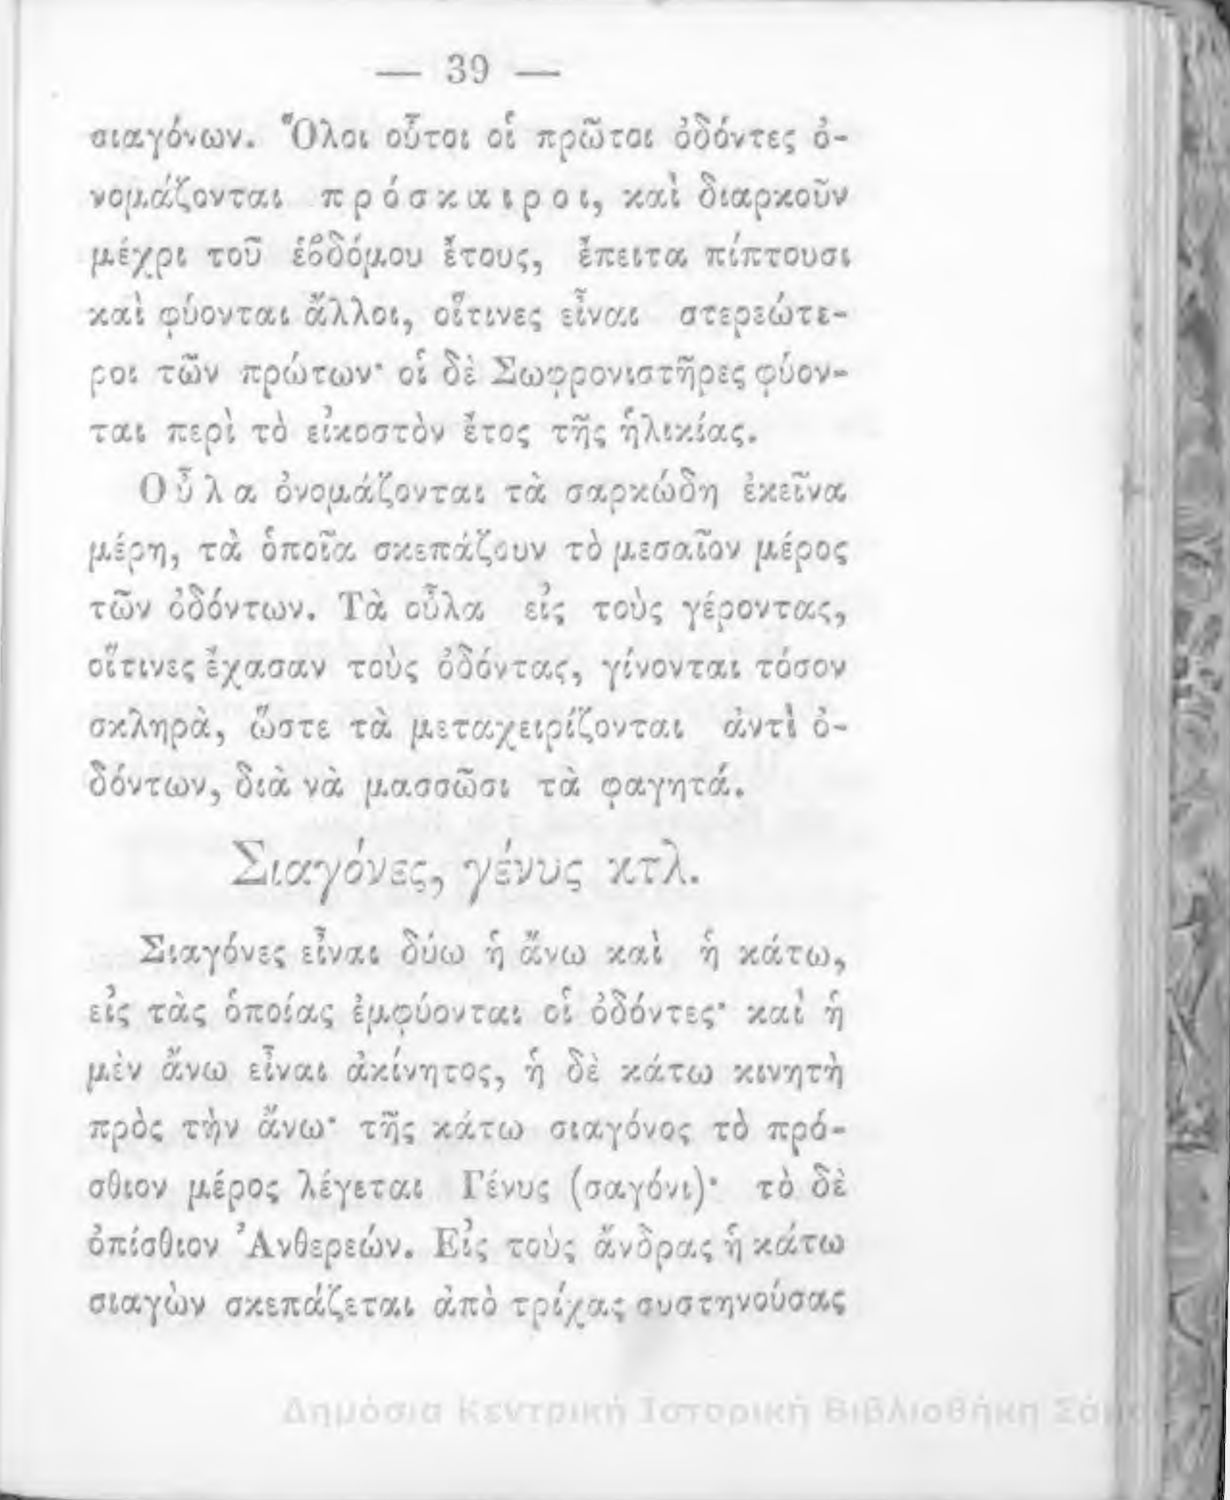 — 39 —
σιαγόνων. Ὅλοι οὗτοι οἱ πρῶτοι ὀδόντες ὀ-
νομάζονται πρόσκαιροι, καὶ διαρκοῦν
μέχρι τοῦ ἑβδόμου ἔτους, ἔπειτα πίπτουσι
καὶ φύονται ἄλλοι, οἵτινες εἶναι στερεώτε-
ροι τῶν πρώτων· οἱ δὲ Σωφρονιστῆρες φύον-
ται περὶ τὸ εἰκοστὸν ἔτος τῆς ἡλικίας.
Οὖλα ὀνομάζονται τὰ σαρκώδη ἐκεῖνα
μέρη, τὰ ὁποῖα σκεπάζουν τὸ μεσαῖον μέρος
τῶν ὀδόντων. Τὰ οὖλα εἰς τοὺς γέροντας,
οἵτινες ἔχασαν τοὺς ὀδόντας, γίνονται τόσον
σκληρὰ, ὥστε τὰ μεταχειρίζονται ἀντὶ ὀ-
δόντων, διὰ νὰ μασσῶσι τὰ φαγητά.
Σιαγόνες, γένυς κτλ.
Σιαγόνες εἶναι δύω ἡ ἄνω καὶ ἡ κάτω,
εἰς τὰς ὁποίας ἐμφύονται οἱ ὀδόντες· καὶ ἡ
μὲν ἄνω εἶναι ἀκίνητος, ἡ δὲ κάτω κινητὴ
πρὸς τὴν ἄνω· τῆς κάτω σιαγόνος τὸ πρό-
σθιον μέρος λέγεται Γένυς (σαγόνι)· τὸ δὲ
ὀπίσθιον Ἀνθερεών. Εἰς τοὺς ἄνδρας ἡ κάτω
σιαγὼν σκεπάζεται ἀπὸ τρίχας συστηνούσας
Δημόσια Κεντρική Ιστορική Βιβλιοθήκη